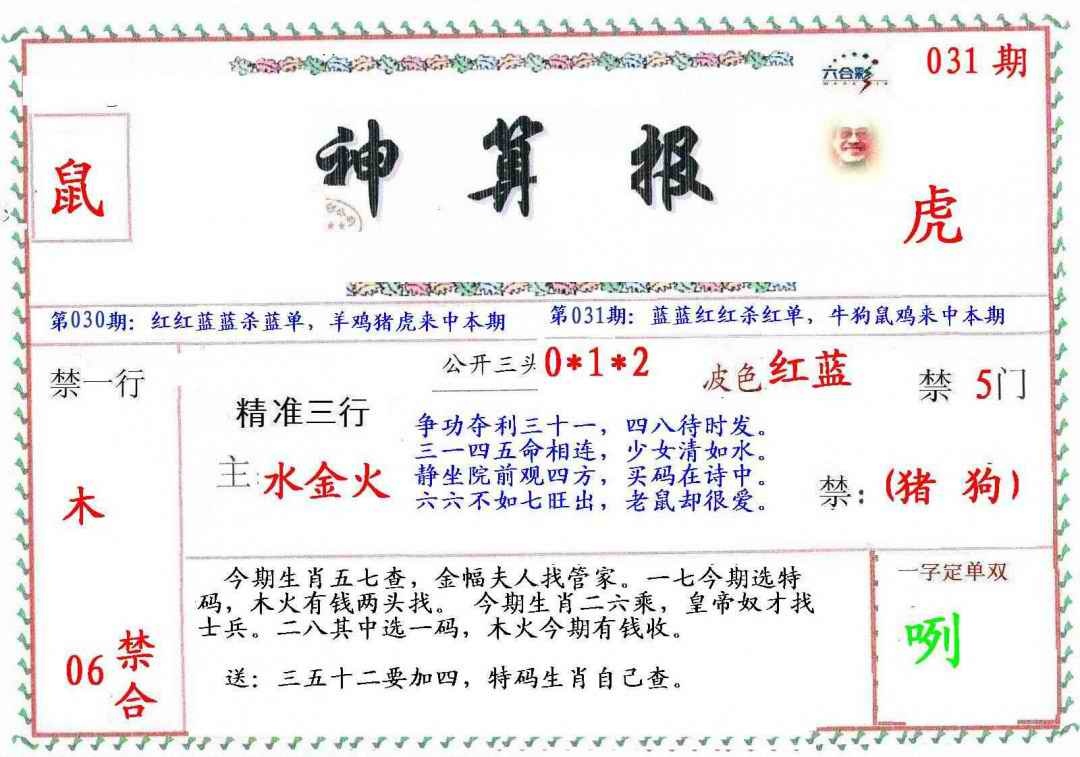 031 期
六合彩
神 算 报
鼠
虎
第030期：红红蓝蓝杀蓝单，羊鸡猪虎来中本期
第031期：蓝蓝红红杀红单，牛狗鼠鸡来中本期
禁一行
公开三头 0*1*2
波色 红蓝
禁 5门
精准三行
争功夺利三十一，四八待时发。
三一四五命相连，少女清如水。
静坐院前观四方，买码在诗中。
六六不如七旺出，老鼠却很爱。
主：水金火
禁：(猪 狗)
木
今期生肖五七查，金幅夫人找管家。一七今期选特
码，木火有钱两头找。 今期生肖二六乘，皇帝奴才找
士兵。二八其中选一码，木火今期有钱收。
送：三五十二要加四，特码生肖自己查。
一字定单双
咧
06 禁合